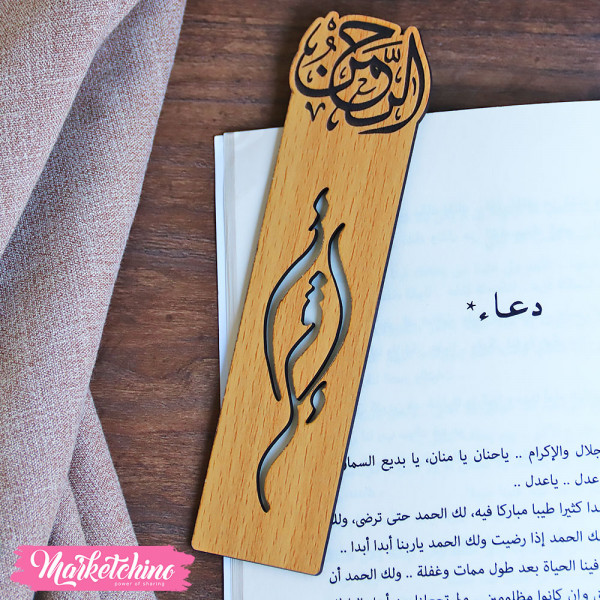 الرَّحمنُ
دعاء*
جلال والإكرام .. ياحنان يا منان، يا بديع السما
عدل .. ياعدل ..
دا كثيرا طيبا مباركا فيه، لك الحمد حتى ترضى، ولك
الحمد إذا رضيت ولك الحمد ياربنا أبدا أبدا ..
فينا الحياة بعد طول ممات وغفلة .. ولك الحمد أن
وإن كانوا مظلومين
Marketchino
power of sharing